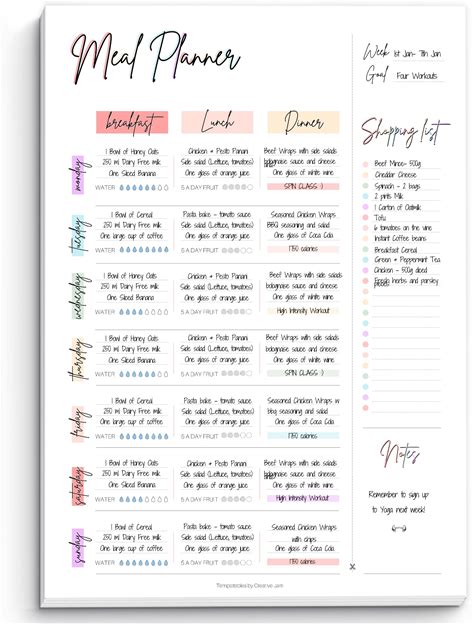 Meal Planner
Week 1st Jan- 7th Jan
Goal Four Workouts
breakfast Lunch Dinner
monday
1 Bowl of Honey Oats
250 ml Dairy Free milk
One Sliced Banana
WATER
Chicken + Pesto Panani
Side salad (Lettuce, tomatoes)
One glass of orange juice
5 A DAY FRUIT
Beef Wraps with side salads
bolognaise sauce and cheese
One glass of white wine
SPIN CLASS :)
tuesday
1 Bowl of Cereal
250 ml Dairy Free milk
One large cup of coffee
WATER
Pasta bake - tomato sauce
Side salad (Lettuce, tomatoes)
One glass of orange juice
5 A DAY FRUIT
Seasoned Chicken Wraps
BBQ seasoning and salad
One glass of Coca Cola
1750 calories
wednesday
1 Bowl of Honey Oats
250 ml Dairy Free milk
One Sliced Banana
WATER
Chicken + Pesto Panani
Side salad (Lettuce, tomatoes)
One glass of orange juice
5 A DAY FRUIT
Beef Wraps with side salads
bolognaise sauce and cheese
One glass of white wine
High Intensity Workout
thursday
1 Bowl of Honey Oats
250 ml Dairy Free milk
One Sliced Banana
WATER
Chicken + Pesto Panani
Side salad (Lettuce, tomatoes)
One glass of orange juice
5 A DAY FRUIT
Beef Wraps with side salads
bolognaise sauce and cheese
One glass of white wine
SPIN CLASS :)
friday
1 Bowl of Honey Oats
250 ml Dairy Free milk
One Sliced Banana
WATER
Chicken + Pesto Panani
Side salad (Lettuce, tomatoes)
One glass of orange juice
5 A DAY FRUIT
Seasoned Chicken Wraps w
bbq seasoning and salad
One glass of Coca Cola
1750 calories
saturday
1 Bowl of Honey Oats
250 ml Dairy Free milk
One Sliced Banana
WATER
Chicken + Pesto Panani
Side salad (Lettuce, tomatoes)
One glass of orange juice
5 A DAY FRUIT
Beef Wraps with side salads
bolognaise sauce and cheese
One glass of white wine
High Intensity Workout
sunday
1 Bowl of Cereal
250 ml Dairy Free milk
One large cup of coffee
WATER
Pasta bake - tomato sauce
Side salad (Lettuce, tomatoes)
One glass of orange juice
5 A DAY FRUIT
Seasoned Chicken Wraps
with chips
One glass of Coca Cola
1780 calories
Shopping list
Beef Mince- 500g
Cheddar Cheese
Spinach - 2 bags
2 pints Milk
1 Carton of Oatmilk
Tofu
6 tomatoes on the vine
Instant Coffee beans
Breakfast Cereal
Green + Peppermint Tea
Chicken - 500g diced
Fresh herbs and parsley
Notes
Remember to sign up
to Yoga next week!
by Creative Jam